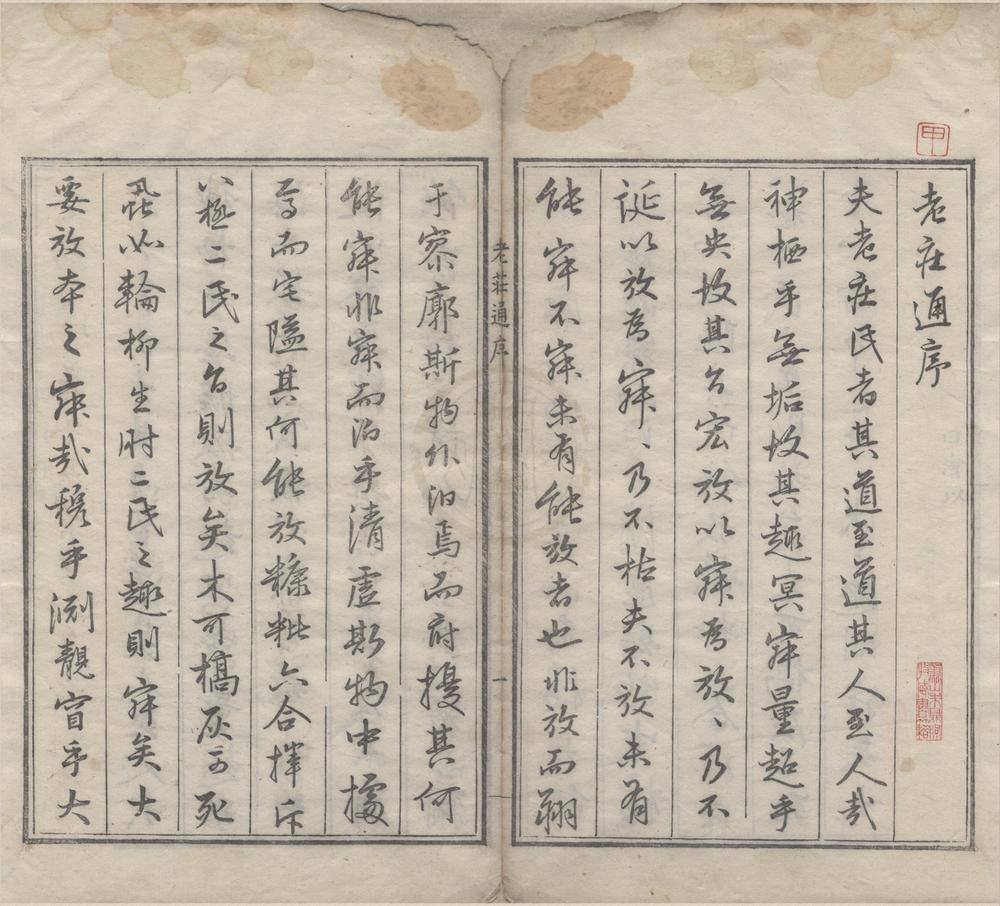 甲
老莊通序
夫老莊氏者其道至道其人至人哉
神栖乎無垢故其趣冥寐量超乎
無央故其言宏放以寐為放、乃不
誕以放為寐、乃不枯夫不放未有
能寐不寐未有能放者也非放而翔
老莊通序
一
于寥廓斯物外汩焉而府擾其何
能寐非寐而泊乎清虛斯物中據
焉而宅隘其何能放糠粃六合揮斥
八極二氏之言則放矣木可槁灰可死
蝨如輪柳生肘二氏之趣則寐矣大
要放本之寐哉穆乎淵靚窅乎大